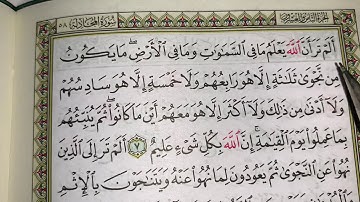 الجزء الثامن والعشرون سورة المجادلة ٥٨
أَلَمْ تَرَ أَنَّ ٱللَّهَ يَعْلَمُ مَا فِي ٱلسَّمَـٰوَٰتِ وَمَا فِي ٱلْأَرْضِ ۖ مَا يَكُونُ
مِن نَّجْوَىٰ ثَلَـٰثَةٍ إِلَّا هُوَ رَابِعُهُمْ وَلَا خَمْسَةٍ إِلَّا هُوَ سَادِسُهُمْ
وَلَآ أَدْنَىٰ مِن ذَٰلِكَ وَلَآ أَكْثَرَ إِلَّا هُوَ مَعَهُمْ أَيْنَ مَا كَانُوا۟ ۖ ثُمَّ يُنَبِّئُهُم
بِمَا عَمِلُوا۟ يَوْمَ ٱلْقِيَـٰمَةِ ۚ إِنَّ ٱللَّهَ بِكُلِّ شَىْءٍ عَلِيمٌ ٧ أَلَمْ تَرَ إِلَى ٱلَّذِينَ
نُهُوا۟ عَنِ ٱلنَّجْوَىٰ ثُمَّ يَعُودُونَ لِمَا نُهُوا۟ عَنْهُ وَيَتَنَـٰجَوْنَ بِٱلْإِثْمِ